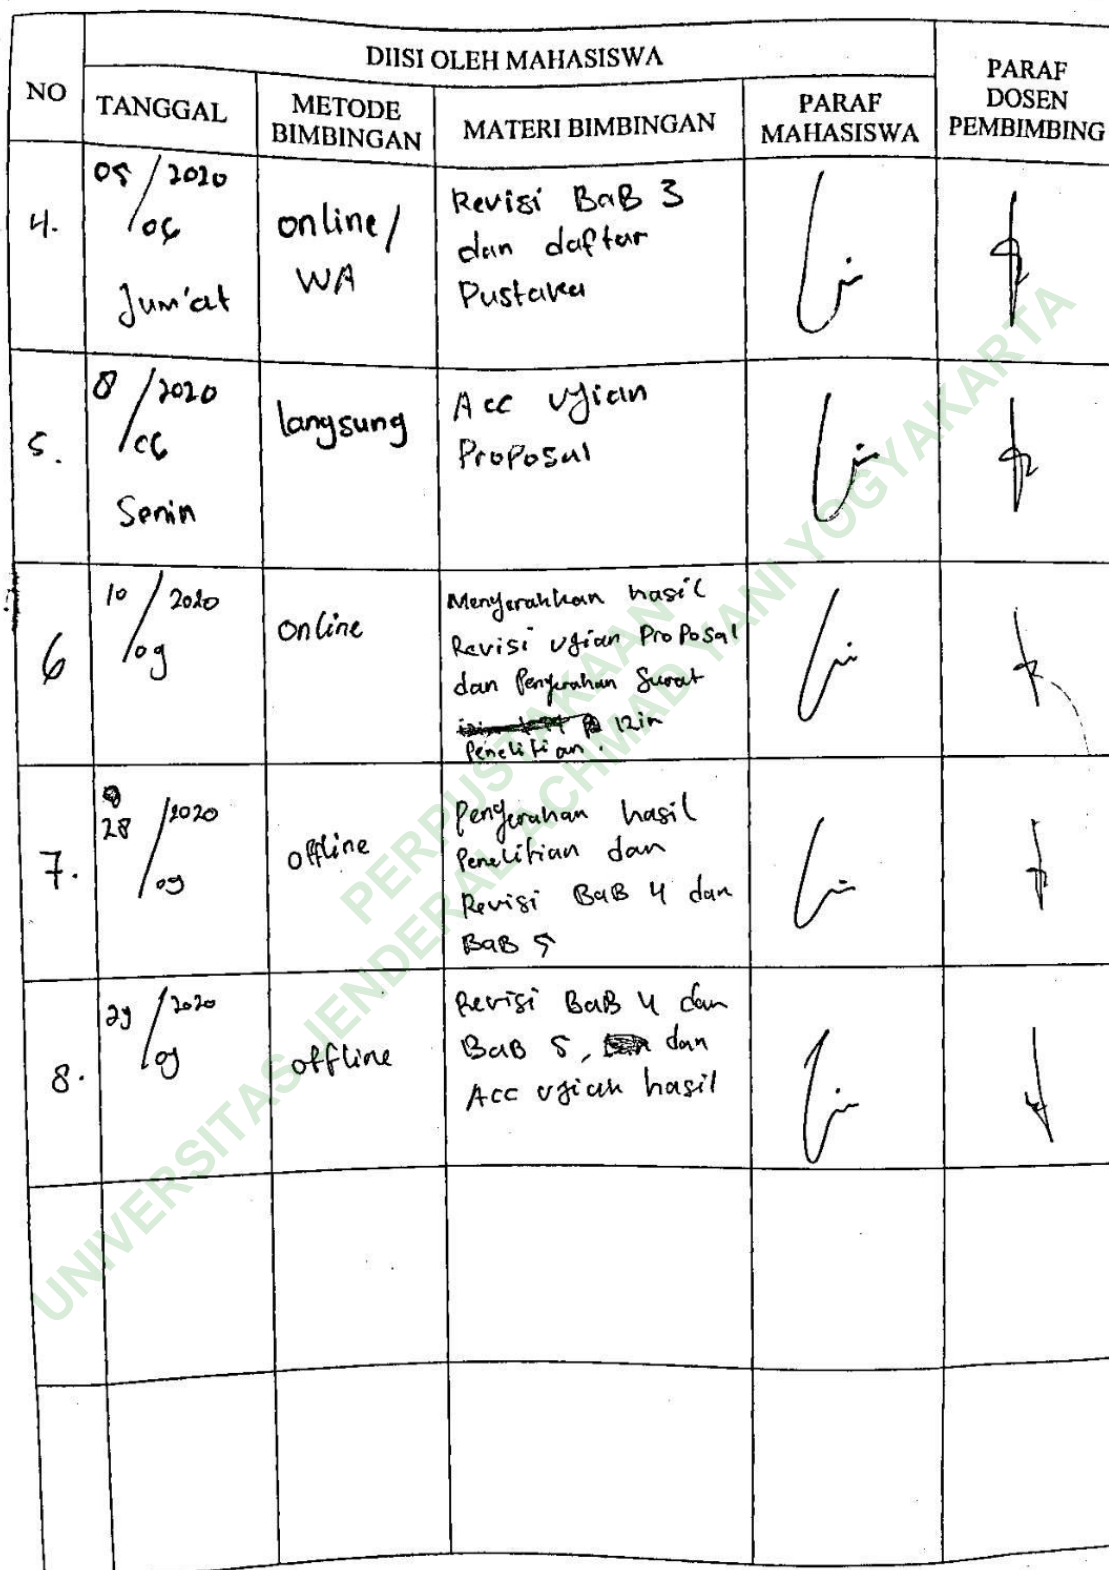 DIISI OLEH MAHASISWA
NO
TANGGAL
METODE
BIMBINGAN
MATERI BIMBINGAN
PARAF
MAHASISWA
PARAF
DOSEN
PEMBIMBING
4.
05/2020
/06
Jum'at
online/
WA
Revisi BaB 3
dan daftar
Pustaka
5.
8/2020
/06
Senin
langsung
Acc ujian
Proposal
6
10/2020
/09
online
Menyerahkan hasil
Revisi ujian ProPosal
dan Penyerahan Surat
izin
Penelitian.
7.
28/2020
/09
offline
Penyerahan hasil
Penelitian dan
Revisi BaB 4 dan
BaB 5
8.
29/2020
/09
offline
Revisi BaB 4 dan
BaB 5, dan
Acc ujian hasil
PERPUSTAKAAN
UNIVERSITAS JENDERAL ACHMAD YANI YOGYAKARTA